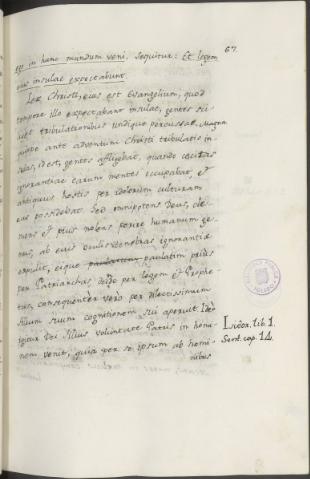 67.
ego in hunc mundum veni. Sequitur: Et legem
eius insulae expectabunt.
Lex Christi, eius est Evangelium, quod
tempore illo expectabant insulae, gentes sci-
licet tribulationibus undique percussae. Magna
quippe ante adventum Christi tribulatio in-
sulas, id est, gentes affligebat, quando cecitas
ignorantiae earum mentes occupabat, et
antiquus hostis per idolorum culturam
eas possidebat. Sed omnipotens Deus, cle-
mens et pius nolens perire humanum ge-
nus, ab eius oculis tenebras ignorantiae
expulit, eique paulatim prius
per Patriarchas, deinde per legem et Prophe-
tas, consequenter vero per dilectissimum
filium suum cognitionem sui aperuit. Ideo
igitur Dei filius voluntate Patris in homi-
nem venit, quia per se ipsum ab homi-
nibus
Lib. 1.
Sent. cap. 14.